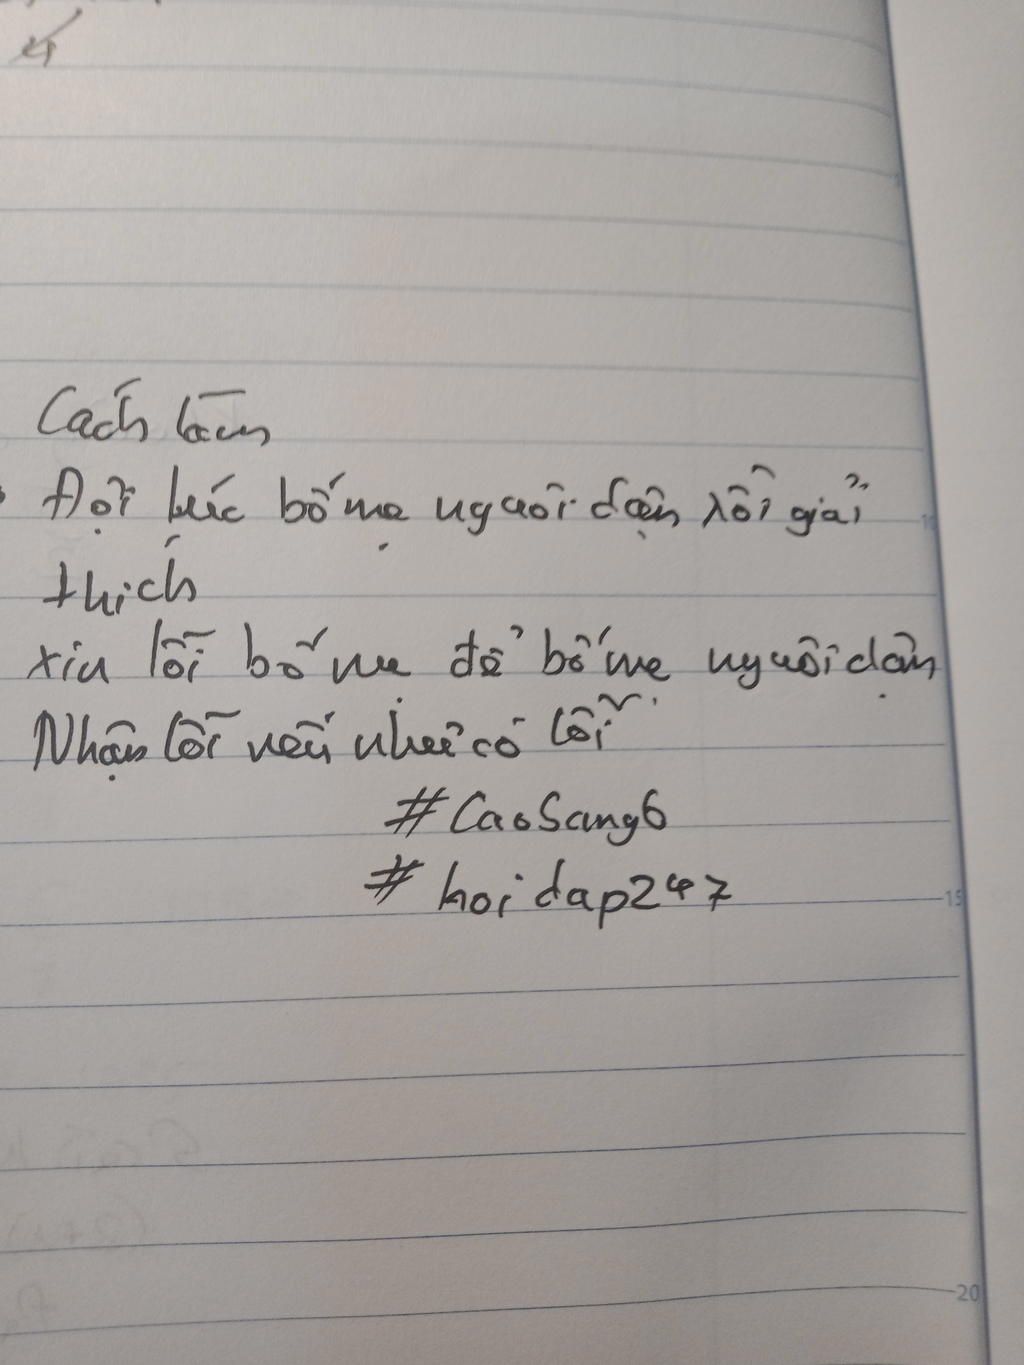 Cách làm
Đợi lúc bố mẹ nguôi dận rồi giải
thích
xin lỗi bố mẹ để bố mẹ nguôi dận
Nhận lỗi nếu như có lỗi
#CaoSang6
#hoidap247
15
20